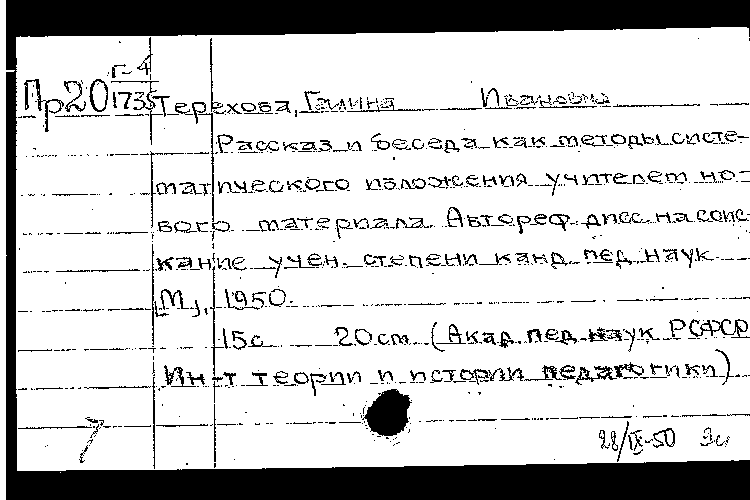 Г-4
Пр20 1735
Терехова, Галина Ивановна
Рассказ и беседа как методы систе-
матического изложения учителем но-
вого материала. Автореф. дисс. на соис-
кание учен. степени канд. пед. наук.
[М], 1950.
15с 20см (Акад. пед. наук РСФСР
Ин-т теории и истории педагогики)
28/IX-50